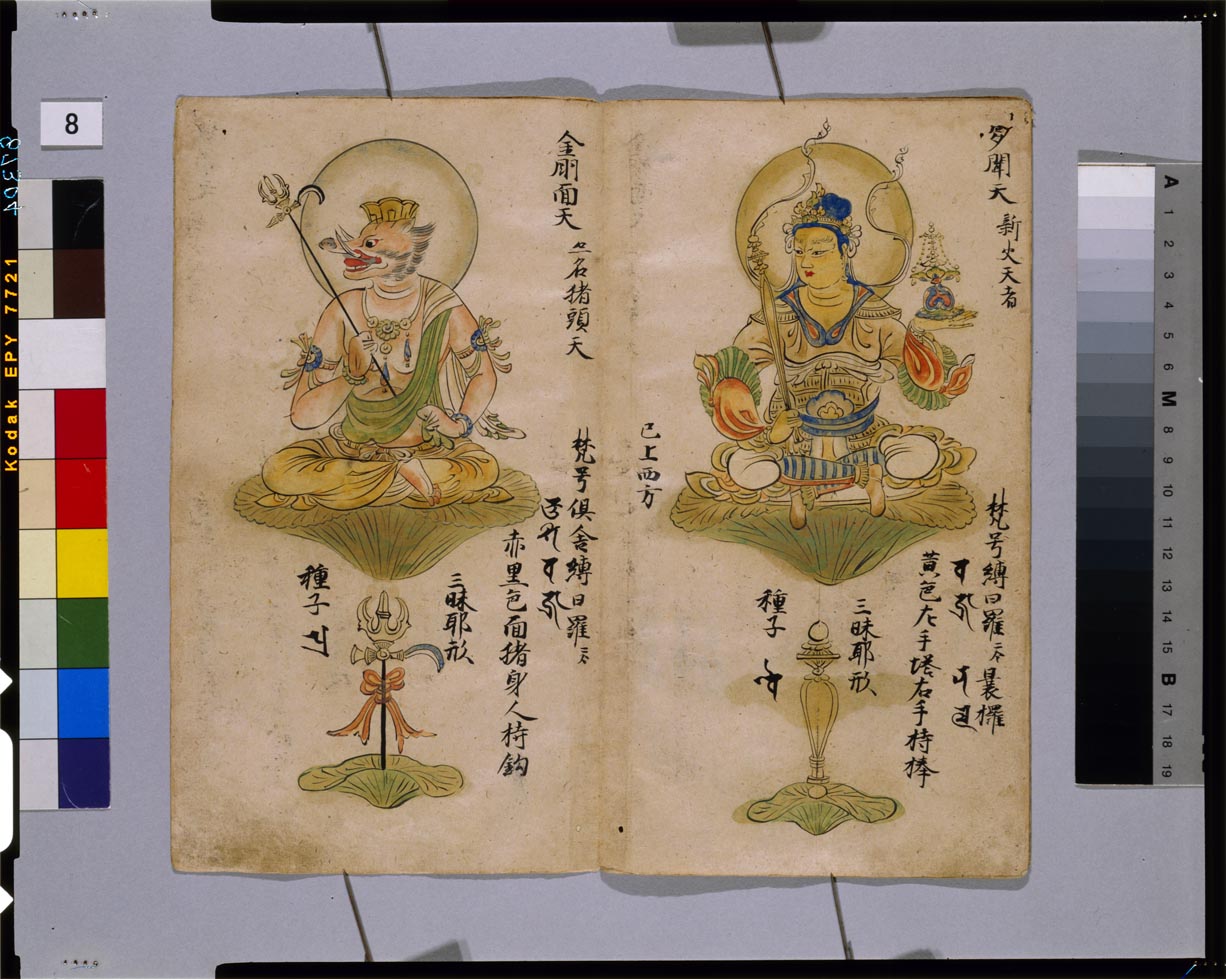 多聞天 新火天者
梵号縛日羅二合
黄色左手塔右手持棒
三昧耶形
種子
已上西方
金剛面天 亦名猪頭天
梵号俱舍縛日羅二合
赤黒色面猪身人持鈎
三昧耶形
種子
8
Kodak EPY 7721
A 1 2 3 4 5 6 M 8 9 10 11 12 13 14 15 B 17 18 19